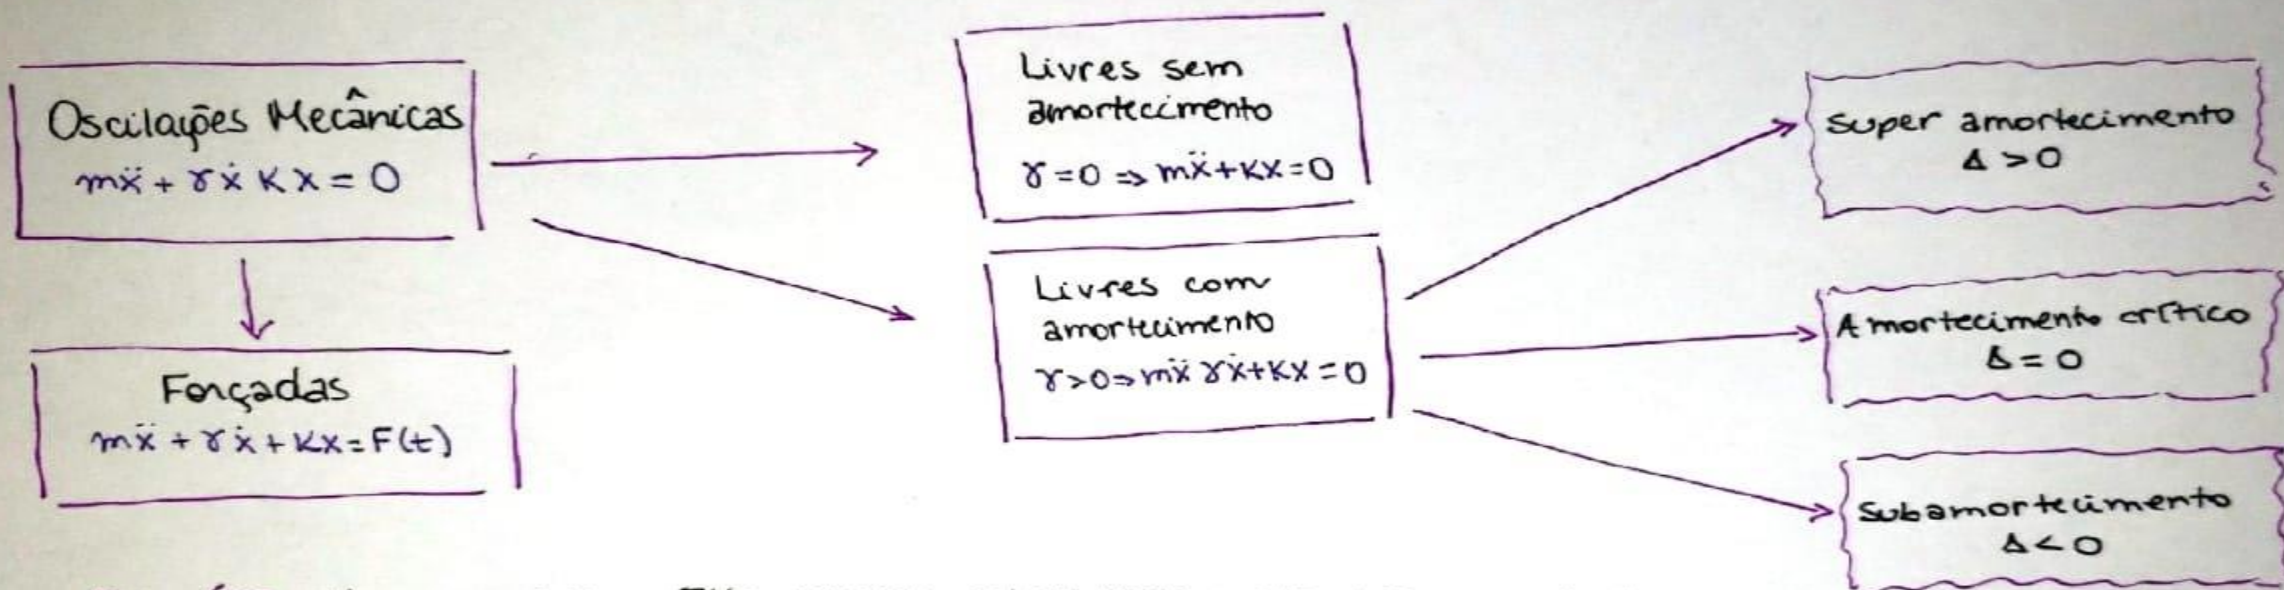 Oscilações Mecânicas
mẍ + γẋ Kx = 0
Forçadas
mẍ + γẋ + Kx = F(t)
Livres sem
amortecimento
γ = 0 ⇒ mẍ + Kx = 0
Livres com
amortecimento
γ > 0 ⇒ mẍ γẋ + Kx = 0
super amortecimento
Δ > 0
Amortecimento crítico
Δ = 0
Subamortecimento
Δ < 0